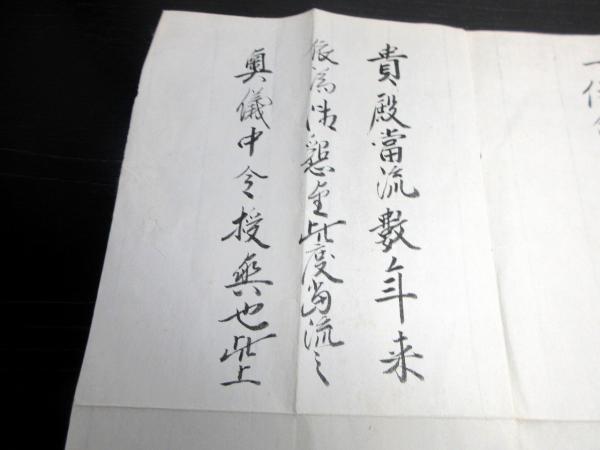 貴殿當流數年来
依為御懇望此度當流之
奥儀中令授與也此上